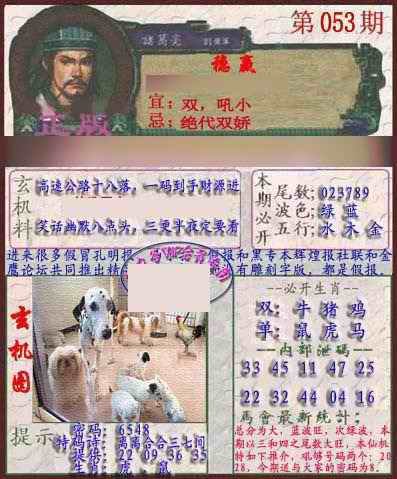 第053期
諸葛亮
稳赢
宜：双，吼小
忌：绝代双娇
正版
玄机料
高速公路十八落，一码到手财源进
笑话幽默八点头，三更半夜定要看
本期必开
尾数;023789
波色;绿 蓝
五行;水 木 金
进来很多假冒孔明报，
报和黑专本辉煌报社联和金
鹰论坛共同推出精
有雕刻字版，都是假报，
玄机图
--必开生肖--
双: 牛 猪 鸡
单: 鼠 虎 马
--内部泄码--
33 45 11 47 25
22 32 44 04 16
馬會最新統計:
总分为大，蓝波旺，次绿波，本
期以三和四之尾数大旺，本仙机
特如下推介，吼够号码两个：20
28，今期送与大家的密码为8.
提示
密码: 6548
特码诗: 离离合合三七间
提供: 22 09 36 35
生肖: 虎、鼠